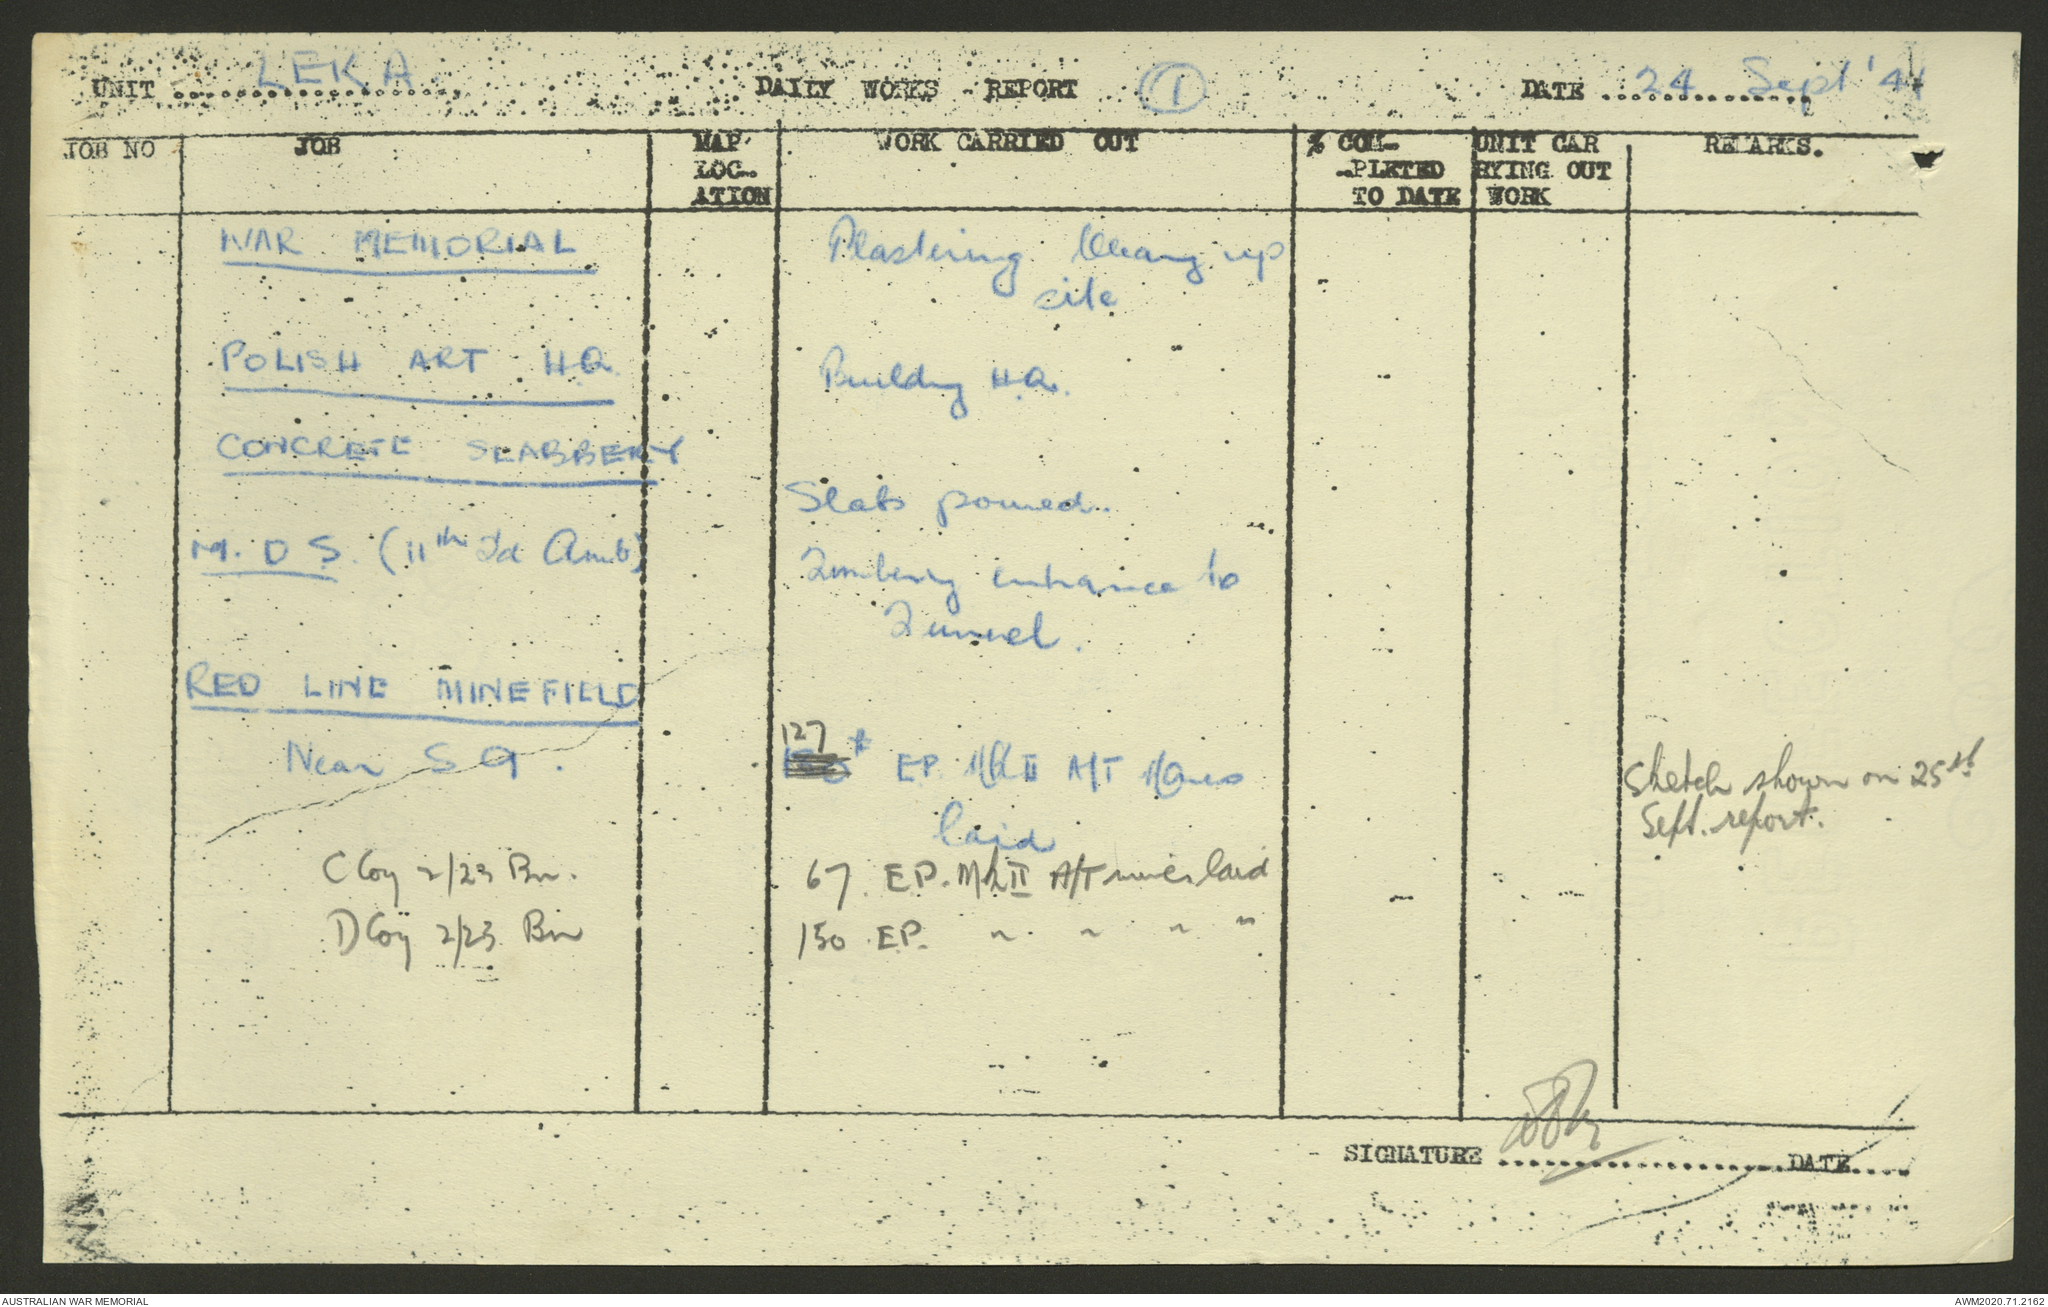 UNIT LEKA DAILY WORKS - REPORT (1) DATE 24 Sept '41
JOB NO JOB MAP LOC- ATION WORK CARRIED OUT % COM- -PLETED TO DATE UNIT CAR RYING OUT WORK REMARKS.
WAR MEMORIAL Plastering Cleang up
site
POLISH ART H.Q. Buildg H.Q.
CONCRETE SLABBERY
Slabs poured.
M.D.S. (11th Fd Amb) Timbering entrance to
Tunnel.
RED LINE MINEFIELD
127
Near S 9. * EP. Mk II A/T Mines Sketch shown on 25th
laid Sept. report.
C Coy 2/23 Bn. 67. E.P. Mk II A/T mines laid
D Coy 2/23 Bn 150 E.P. " " " "
SIGNATURE DATE
AUSTRALIAN WAR MEMORIAL AWM2020.71.2162